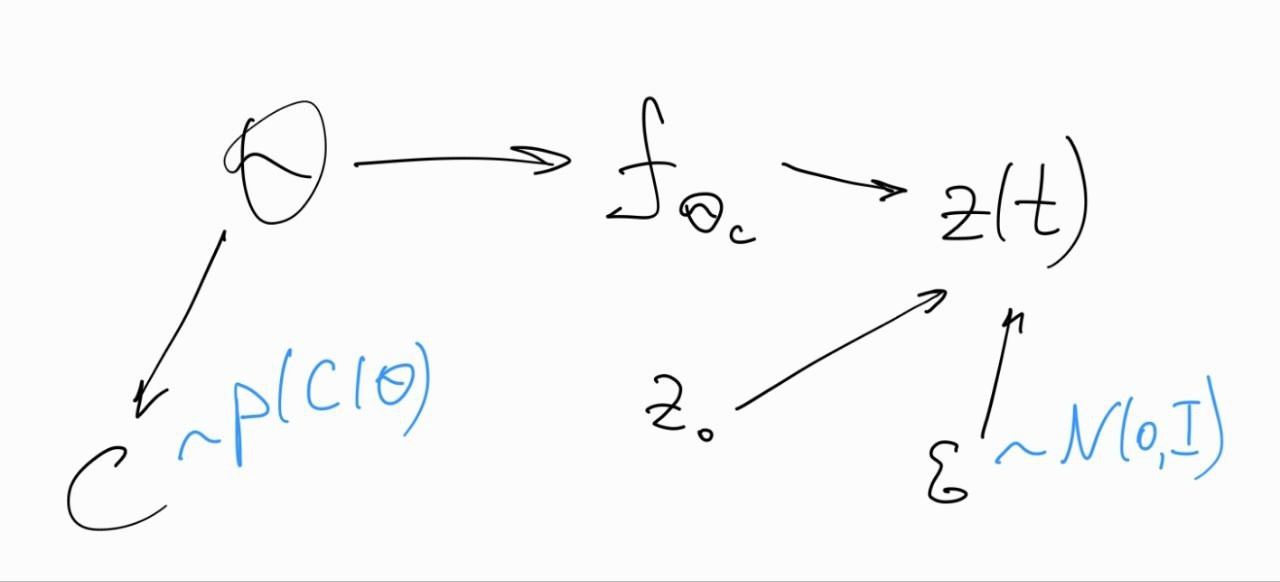 θ → f_θ_c → z(t)
C ~ p(C|θ)
z₀
ε ~ N(0, I)